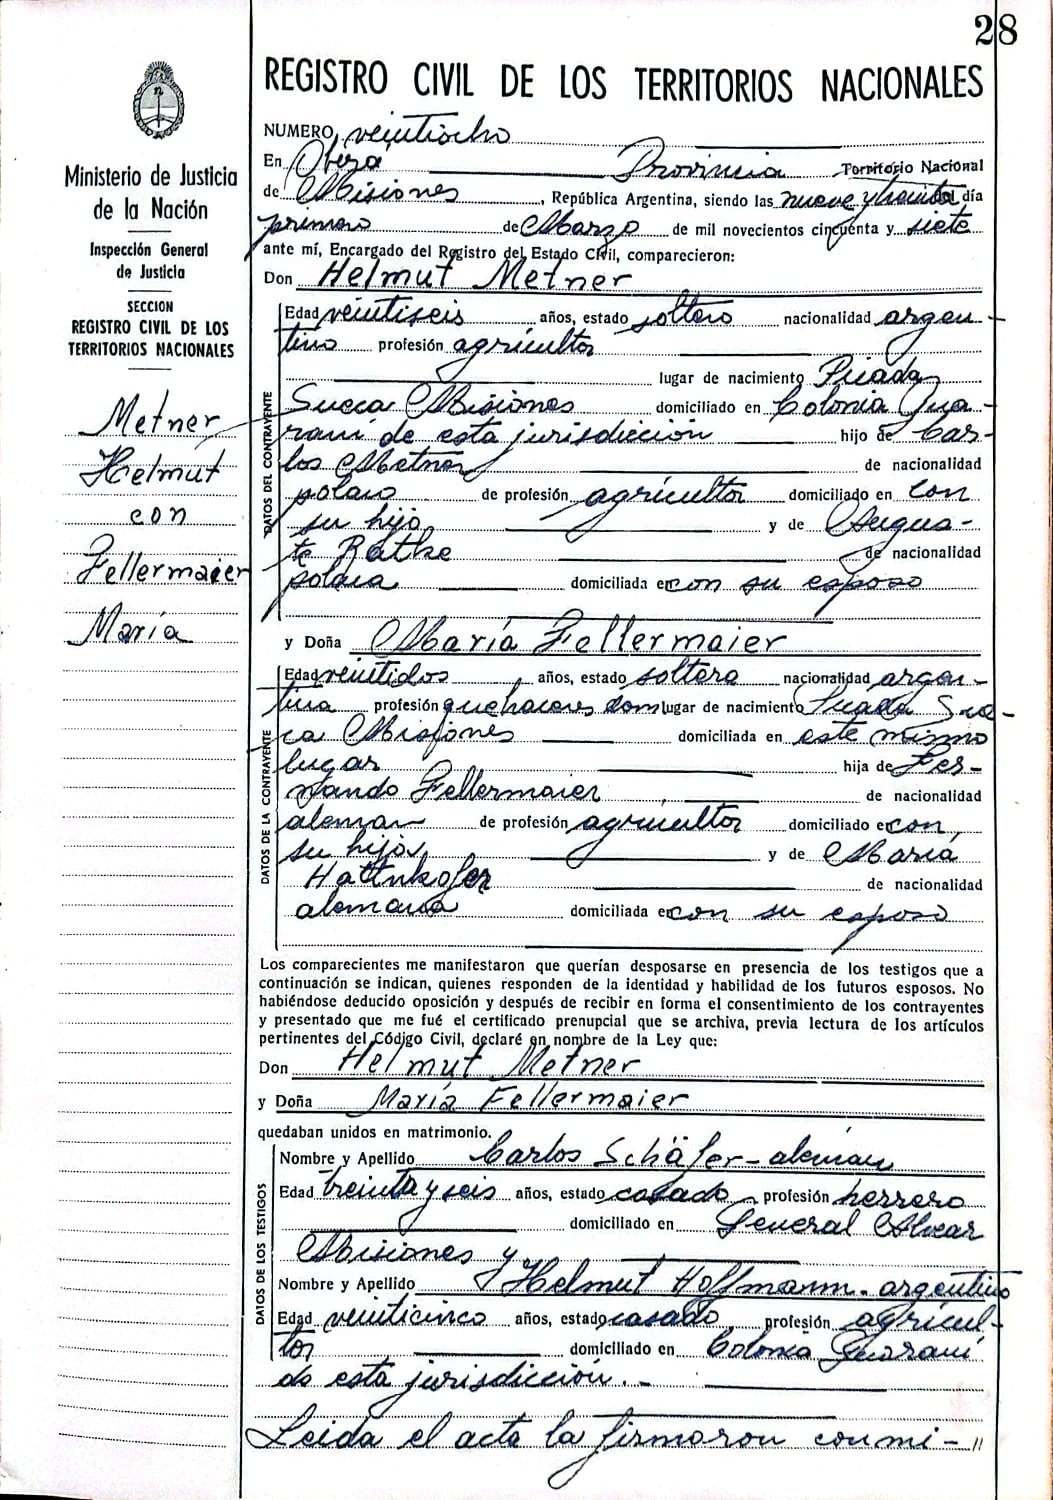 28
REGISTRO CIVIL DE LOS TERRITORIOS NACIONALES
Ministerio de Justicia
de la Nación
Inspección General
de Justicia
SECCION
REGISTRO CIVIL DE LOS
TERRITORIOS NACIONALES
Metner
Helmut
con
Fellermaier
María
NUMERO veintiocho
En Oberá Provincia Territorio Nacional
de Misiones, República Argentina, siendo las nueve y treinta día
primero de Marzo de mil novecientos cincuenta y siete
ante mí, Encargado del Registro del Estado Civil, comparecieron:
Don Helmut Metner
DATOS DEL CONTRAYENTE
Edad veintiseis años, estado soltero nacionalidad argen-
tino profesión agricultor
lugar de nacimiento Picada
Sueca Misiones domiciliado en Colonia Gua-
raní de esta jurisdicción hijo de Car-
los Metner de nacionalidad
polaco de profesión agricultor domiciliado en con
su hijo y de Augus-
te Ratke de nacionalidad
polaca domiciliada en con su esposo
y Doña María Fellermaier
DATOS DE LA CONTRAYENTE
Edad veintidos años, estado soltera nacionalidad argen-
tina profesión quehaceres dom lugar de nacimiento Picada Sue-
ca Misiones domiciliada en este mismo
lugar hija de Fer-
nando Fellermaier de nacionalidad
aleman de profesión agricultor domiciliado en con
su hija y de María
Hattnkofer de nacionalidad
alemana domiciliada en con su esposo
Los comparecientes me manifestaron que querían desposarse en presencia de los testigos que a
continuación se indican, quienes responden de la identidad y habilidad de los futuros esposos. No
habiéndose deducido oposición y después de recibir en forma el consentimiento de los contrayentes
y presentado que me fué el certificado prenupcial que se archiva, previa lectura de los artículos
pertinentes del Código Civil, declaré en nombre de la Ley que:
Don Helmut Metner
y Doña María Fellermaier
quedaban unidos en matrimonio.
DATOS DE LOS TESTIGOS
Nombre y Apellido Carlos Schäfer - alemán
Edad treinta y seis años, estado casado profesión herrero
domiciliado en General Alvear
Misiones y
Nombre y Apellido Helmut Hoffmann - argentino
Edad veinticinco años, estado casado profesión agricul-
tor domiciliado en Colonia Guaraní
de esta jurisdicción. -
Leida el acta la firmaron con mi - //